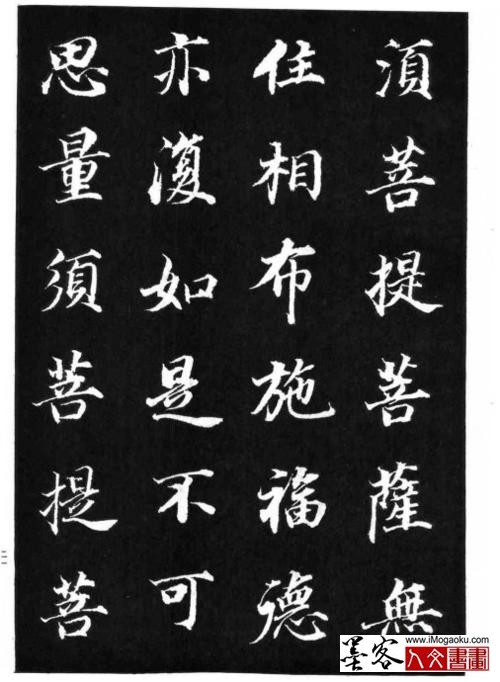 須菩提菩薩無
住相布施福德
亦復如是不可
思量須菩提菩
二二
www.iMogaoku.com
墨客
人文書畫